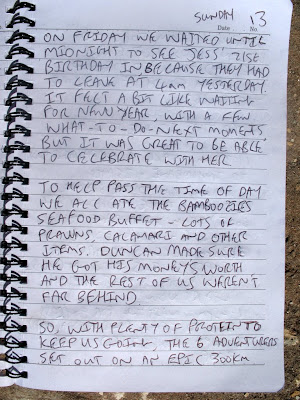 SUNDAY 13
Date No.
ON FRIDAY WE WAITED UNTIL
MIDNIGHT TO SEE JESS' 21SE
BIRTHDAY IN BECAUSE THEY HAD
TO LEAVE AT 4AM YESTERDAY.
IT FELT A BIT LIKE WAITING
FOR NEW YEAR, WITH A FEW
WHAT-TO-DO-NEXT MOMENTS
BUT IT WAS GREAT TO BE ABLE
TO CELEBRATE WITH HER
TO HELP PASS THE TIME OF DAY
WE ALL ATE THE BAMBOOZIES
SEAFOOD BUFFET - LOTS OF
PRAWNS, CALAMARI AND OTHER
ITEMS. DUNCAN MADE SURE
HE GOT HIS MONEYS WORTH
AND THE REST OF US WEREN'T
FAR BEHIND
SO, WITH PLENTY OF PROTEIN TO
KEEP US GOING, THE 6 ADVENTURERS
SET OUT ON AN EPIC 300KM